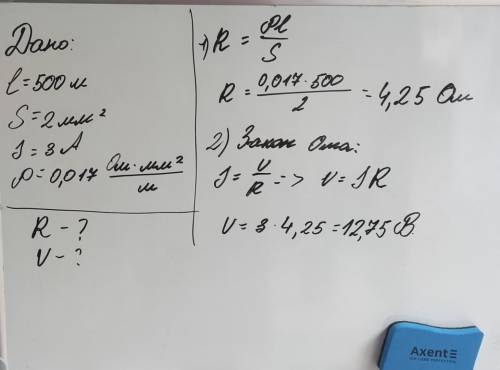 Дано:
l = 500 м
S = 2 мм²
I = 3 А
ρ = 0,017 Ом · мм² / м
R - ?
U - ?
1) R = ρl / S
R = 0,017 · 500 / 2 = 4,25 Ом
2) Закон Ома:
I = U / R => U = IR
U = 3 · 4,25 = 12,75 В.
Axent